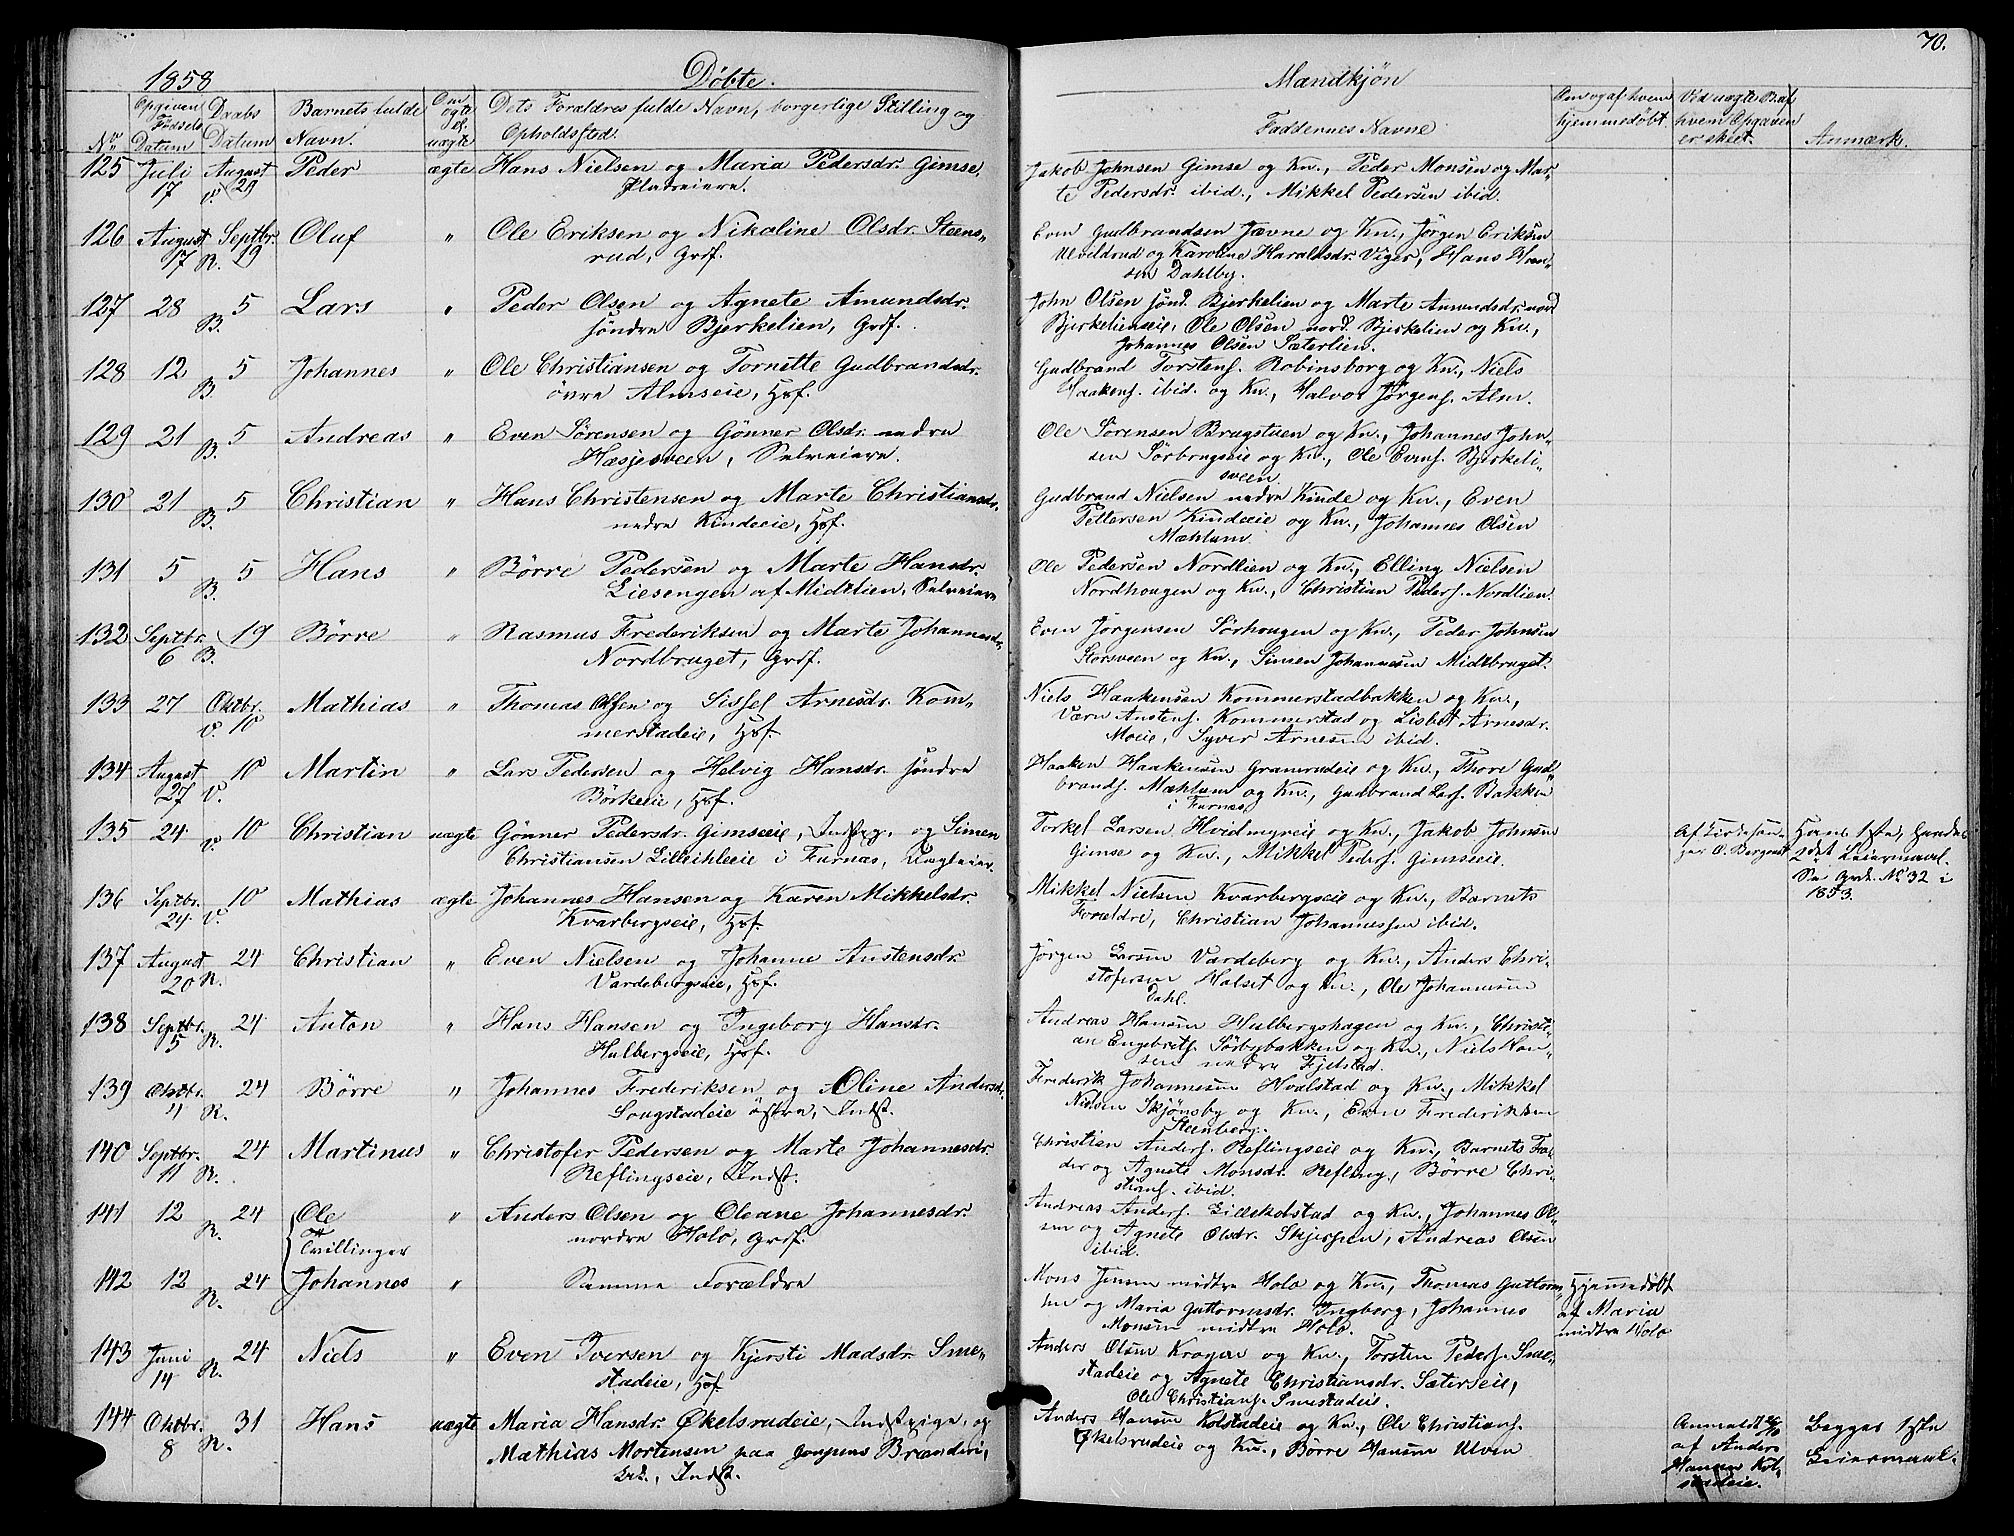 70.
1858 Döbte. Mandkjön
No. Opgiven Fødsels Datum Daabs Datum Barnets fulde Navn. Om ægte el. uægte Dets Forældres fulde Navn, borgerlige Stilling og Opholdssted. Faddernes Navne Om og af hvem hjemmedøbt. Ved uægte B. af hvem Opgaven er skeet. Anmærk.
125 Juli 17 August 29 V. Peder ægte Hans Nielsen og Maria Pedersdr. Gimse,
Pladseiere.
Jakob Johnsen Gimse og Kn., Peder Monsen og Mar-
te Pedersdr. ibid., Mikkel Pedersen ibid.
126 August 17 Septbr. 19 R. Oluf " Ole Eriksen og Nikoline Olsdr. Steens-
rud, Grdf.
Even Gudbrandsen Jevne og Kn., Jørgen Eriksen
Ulvildrud og Karoline Haraldsdr. Viger, Hans Han-
sen Dahlby.
127 28 B. 5 Lars " Peder Olsen og Agnete Amundsdr.
søndre Bjerkelien, Grdf.
John Olsen sønd. Bjerkelien og Marte Amundsdr. nord
Bjerkelienseie, Ole Olsen nord. Bjerkelien og Kn.,
Johannes Olsen Sæterlien.
128 12 B. 5 Johannes " Ole Christiansen og Tornette Gudbrandsdr.
övre Almseie, Hsf.
Gudbrand Torstens. Robinsborg og Kn., Niels
Haakens. ibid. og Kn., Halvor Jørgens. Alm.
129 21 B. 5 Andreas " Even Sörensen og Gönner Olsdr. nedre
Hæsjesveen, Selveiere.
Ole Sörensen Brugstuen og Kn., Johannes John-
sen Sörbrugseie og Kn., Ole Evens. Bjerkeli-
sveen.
130 21 B. 5 Christian " Hans Christensen og Marte Christiansdr.
nedre Kindeeie, Hsf.
Gudbrand Nielsen nedre Kinde og Kn., Even
Pettersen Kindeeie og Kn., Johannes Olsen
Mæhlum.
131 5 B. 5 Hans " Börre Pedersen og Marte Hansdr.
Liesengen af Midtlien, Selveiere
Ole Pedersen Nordlien og Kn., Elling Nielsen
Nordhougen og Kn., Christian Peders. Nordlien.
132 Septbr. 6 B. 19 Börre " Rasmus Frederiksen og Marte Johannesdr.
Nordbruget, Grdf.
Even Jörgensen Sörhougen og Kn., Peder Johnsen
Storsveen og Kn., Simen Johannesen Midtbruget.
133 27 Oktbr. V. 10 Mathias " Thomas Olsen og Sissel Arnesdr. Kom-
merstadeie, Hsf.
Niels Haakensen Kommerstadbakken og Kn.,
Værn Austens. Kommerstad og Lisbet Arnesdr.
Moeie, Syver Arnesen ibid.
134 August 27 V. 10 Martin " Lars Pedersen og Helvig Hansdr. søndre
Börkeeie, Hsf.
Haaken Haakensen Granrudeie og Kn., Thore Gud-
brands. Mæhlum og Kn., Gudbrand Lars. Bakken
i Furnæs
135 24 V. 10 Christian uægte Gönner Pedersdr. Gimseeie, Indstpg. og Simen
Christiansen Lilleihleeie i Furnæs, Ungkarl.
Torkel Larsen Hvidmyreie og Kn., Jakob Johnsen
Gimse og Kn., Mikkel Peders. Gimseeie.
Af Kirkesan-
ger O. Bergout
Hans 1ste, hendes
2det Leiermaal.
Se Grdr. No 32 i
1853.
136 Septbr. 24 V. 10 Mathias ægte Johannes Hansen og Karen Mikkelsdr.
Kvarbergseie, Hsf.
Mikkel Nielsen Kvarbergseie og Kn., Barnets
Forældre, Christian Johannessen ibid.
137 August 20 R. 24 Christian " Even Nielsen og Johanne Austensdr.
Vardebergseie, Hsf.
Jörgen Larsen Vardeberg og Kn., Anders Chri-
stofersen Halset og Kn., Ole Johannesen
Dahl.
138 Septbr. 5 R. 24 Anton " Hans Hansen og Ingeborg Hansdr.
Hulbergseie, Hsf.
Andreas Hansen Hulbergshagen og Kn., Christi-
an Engebrets. Sörbybakken og Kn., Niels Han-
sen nedre Fjelstad.
139 Oktbr. 4 R. 24 Börre " Johannes Frederiksen og Oline Andersdr.
Sougstadeie östre, Indst.
Frederik Johannesen Hvalstad og Kn., Mikkel
Nielsen Skjönsby og Kn., Even Frederiksen
Steenberg.
140 Septbr. 11 R. 24 Martinus " Christofer Pedersen og Marte Johannesdr.
Reflingseie, Indst.
Christian Anders. Reflingseie og Kn., Barnets Fa-
der og Agnete Monsdr. Refling, Börre Chri-
stians. ibid.
141 12 R. 24 Ole " Anders Olsen og Oleane Johannesdr.
nordre Holo, Grdf.
Tvillinger
Andreas Anders. Lillekolstad og Kn., Johannes Ol-
sen og Agnete Olsdr. Skjerpen, Andreas Olsen
ibid.
142 12 R. 24 Johannes " Samme Forældre
Mons Jensen midtre Holo og Kn., Thomas Guttorm-
sen og Maria Guttormsdr. Ingborg, Johannes
Monsen midtre Holo.
Hjemmedöbt
af Maria
midtre Holo
143 Juni 14 R. 24 Niels " Even Iversen og Kjersti Madsdr. Sme-
stadeie, Hsf.
Anders Olsen Kragen og Kn., Torsten Peders. Sme-
stadeie og Agnete Christiansdr. Sæterseie,
Ole Christians. Smestadeie.
144 Oktbr. 8 R. 31 Hans uægte Maria Hansdr. Økelsrudeie, Indstpige, og
Mathias Mortensen paa Jonpens Brænderi,
Indst.
Anders Hansen Kolstadeie og Kn., Ole Christians.
Økelsrudeie og Kn., Börre Hansen Ulven
Anmeldt
af Anders
Hansen Kol-
stadeie.
Begges 1ste
Leiermaal.